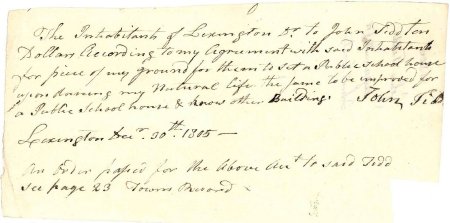 The Inhabitants of Lexington Dr to John Tidd ten
Dollars According to my Agreement with said Inhabitants
for piece of my ground for them to set a Public School house
upon during my Natural life the same to be improved for
a Public School house & know other Building John Tidd
Lexington Decr 30th 1805 —
An Order passed for the Above Act to said Tidd
see page 23 Towns Record